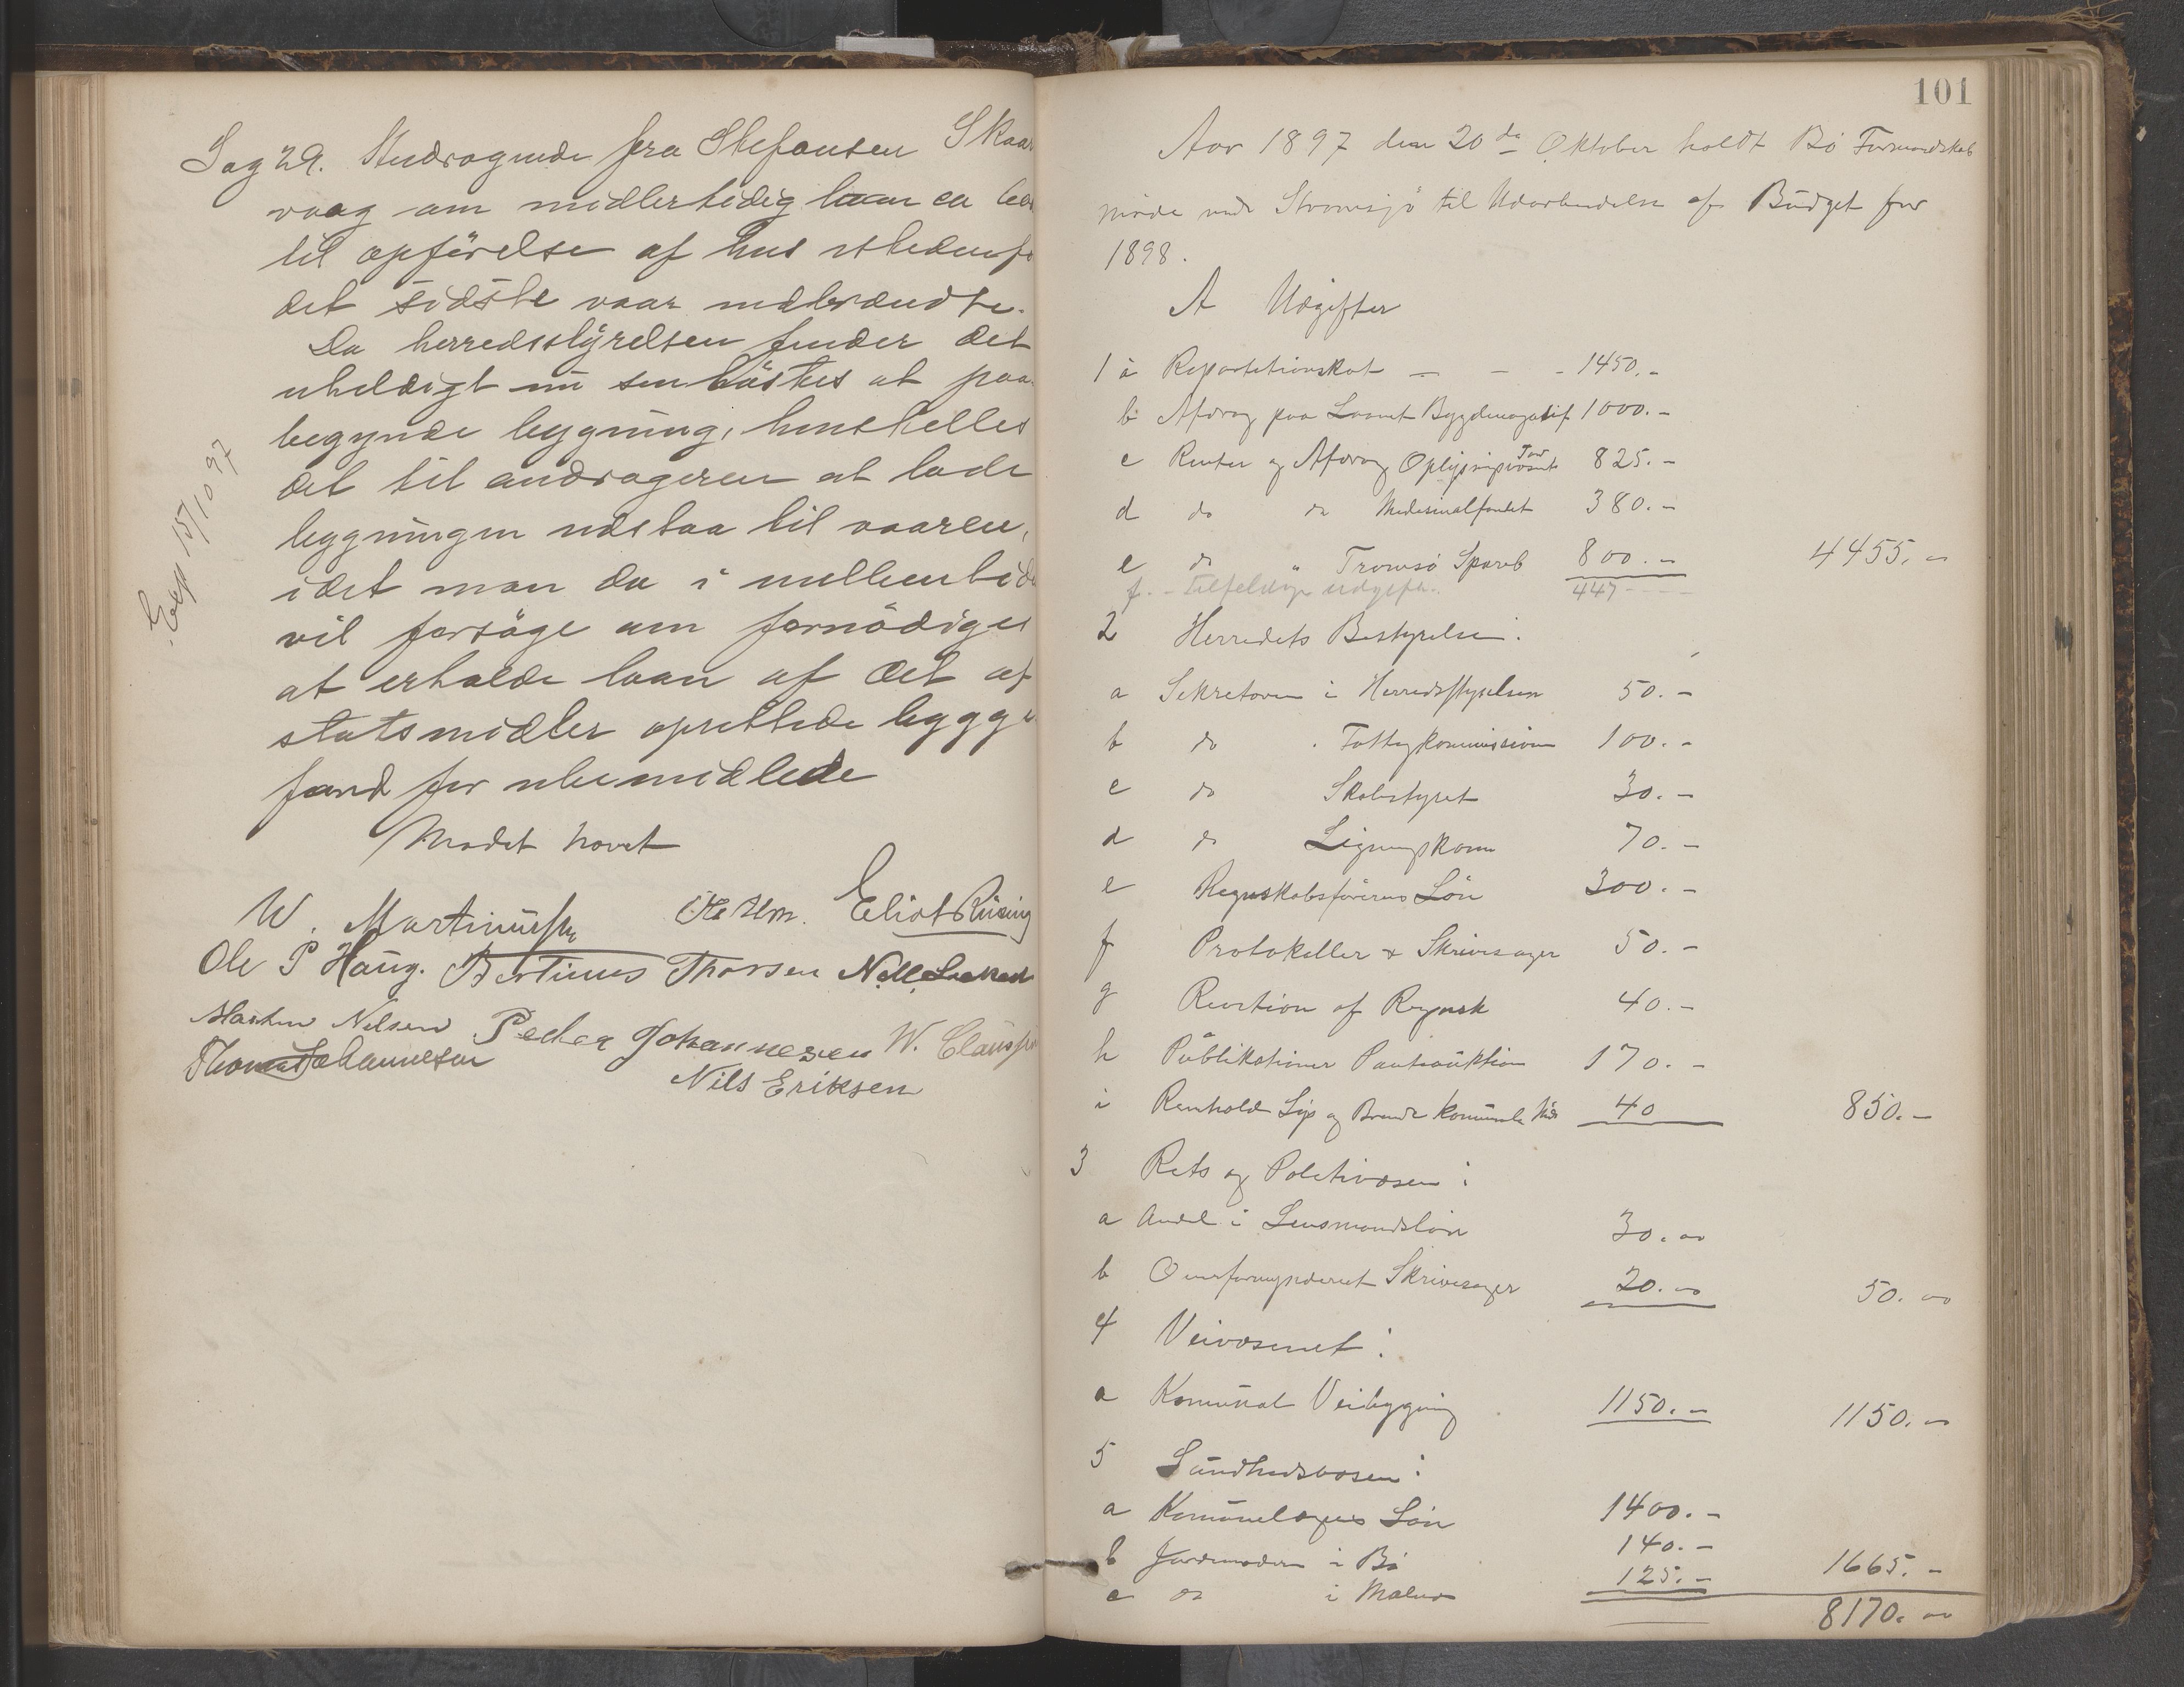 Sag 29. Andragende fra Stefansen Skaar
vaag om midlertidig laan ca
til opförelse af hus istedenfo
det sidste vaar nedbrændte.
Da herredsstyrelsen finder det
uheldigt nu senhöstes at paa
begynde bygning, henstilles
det til andrageren at lade
bygningen udstaa til vaaren,
idet man da i mellemtide
vil forsöge om fornödiges
at erholde laan af det af
statsmidler oprettede bygge
fond for ubemidlede
Mödet hævet
Exp 15/10 97
W. Martinussen Eliot Rüsing
Ole P Haug. Bertinus Thorsen
Martin Nilsen Peder Johannesen W. Claussen
Thomas Johannesen
Nils Eriksen
101
Aar 1897 den 20de Oktober holdt Bö Formandskab
möde ved Strömsjö til Udarbeidelse af Budget for
1898.
A Udgifter
1 a Repartitionskat — - - 1450.-
b Afdrag paa Laanet Bygdemagasif 1000.-
c Renter og Afdrag 825.-
d do do Medisinalfondet 380.-
e do " Tromsö Spareb 800.- 4455.-
f. - Tilfeldige udgifter. 447 - - -
2 Herredets Bestyrelse.
a Sekretæren i Herredsstyrelsen 50.-
b do . Fattigkommissionen 100.-
c do Skolestyret 30.-
d do Ligningskom 70.-
e Regnskabsförerens Lön 300.-
f Protokoller & Skrivesager 50.-
g Revision af Regnsk 40.-
h Publikationer Panteauktion 170.-
i Renhold Lys og Brende Komunale 40 850.-
3 Rets og Politivæsen :
a Andel i Lensmandslön 30.00
b Overformynderiet Skrivesager 20.00 50.00
4 Veivæsenet :
a Komunal Veibygning 1150.- 1150.-
5 Sundhedsvæsen :
a Komunelægens Lön 1400.-
b Jordemoderen i Bö 140.-
c do i Malnes 125.- 1665.-
8170.00